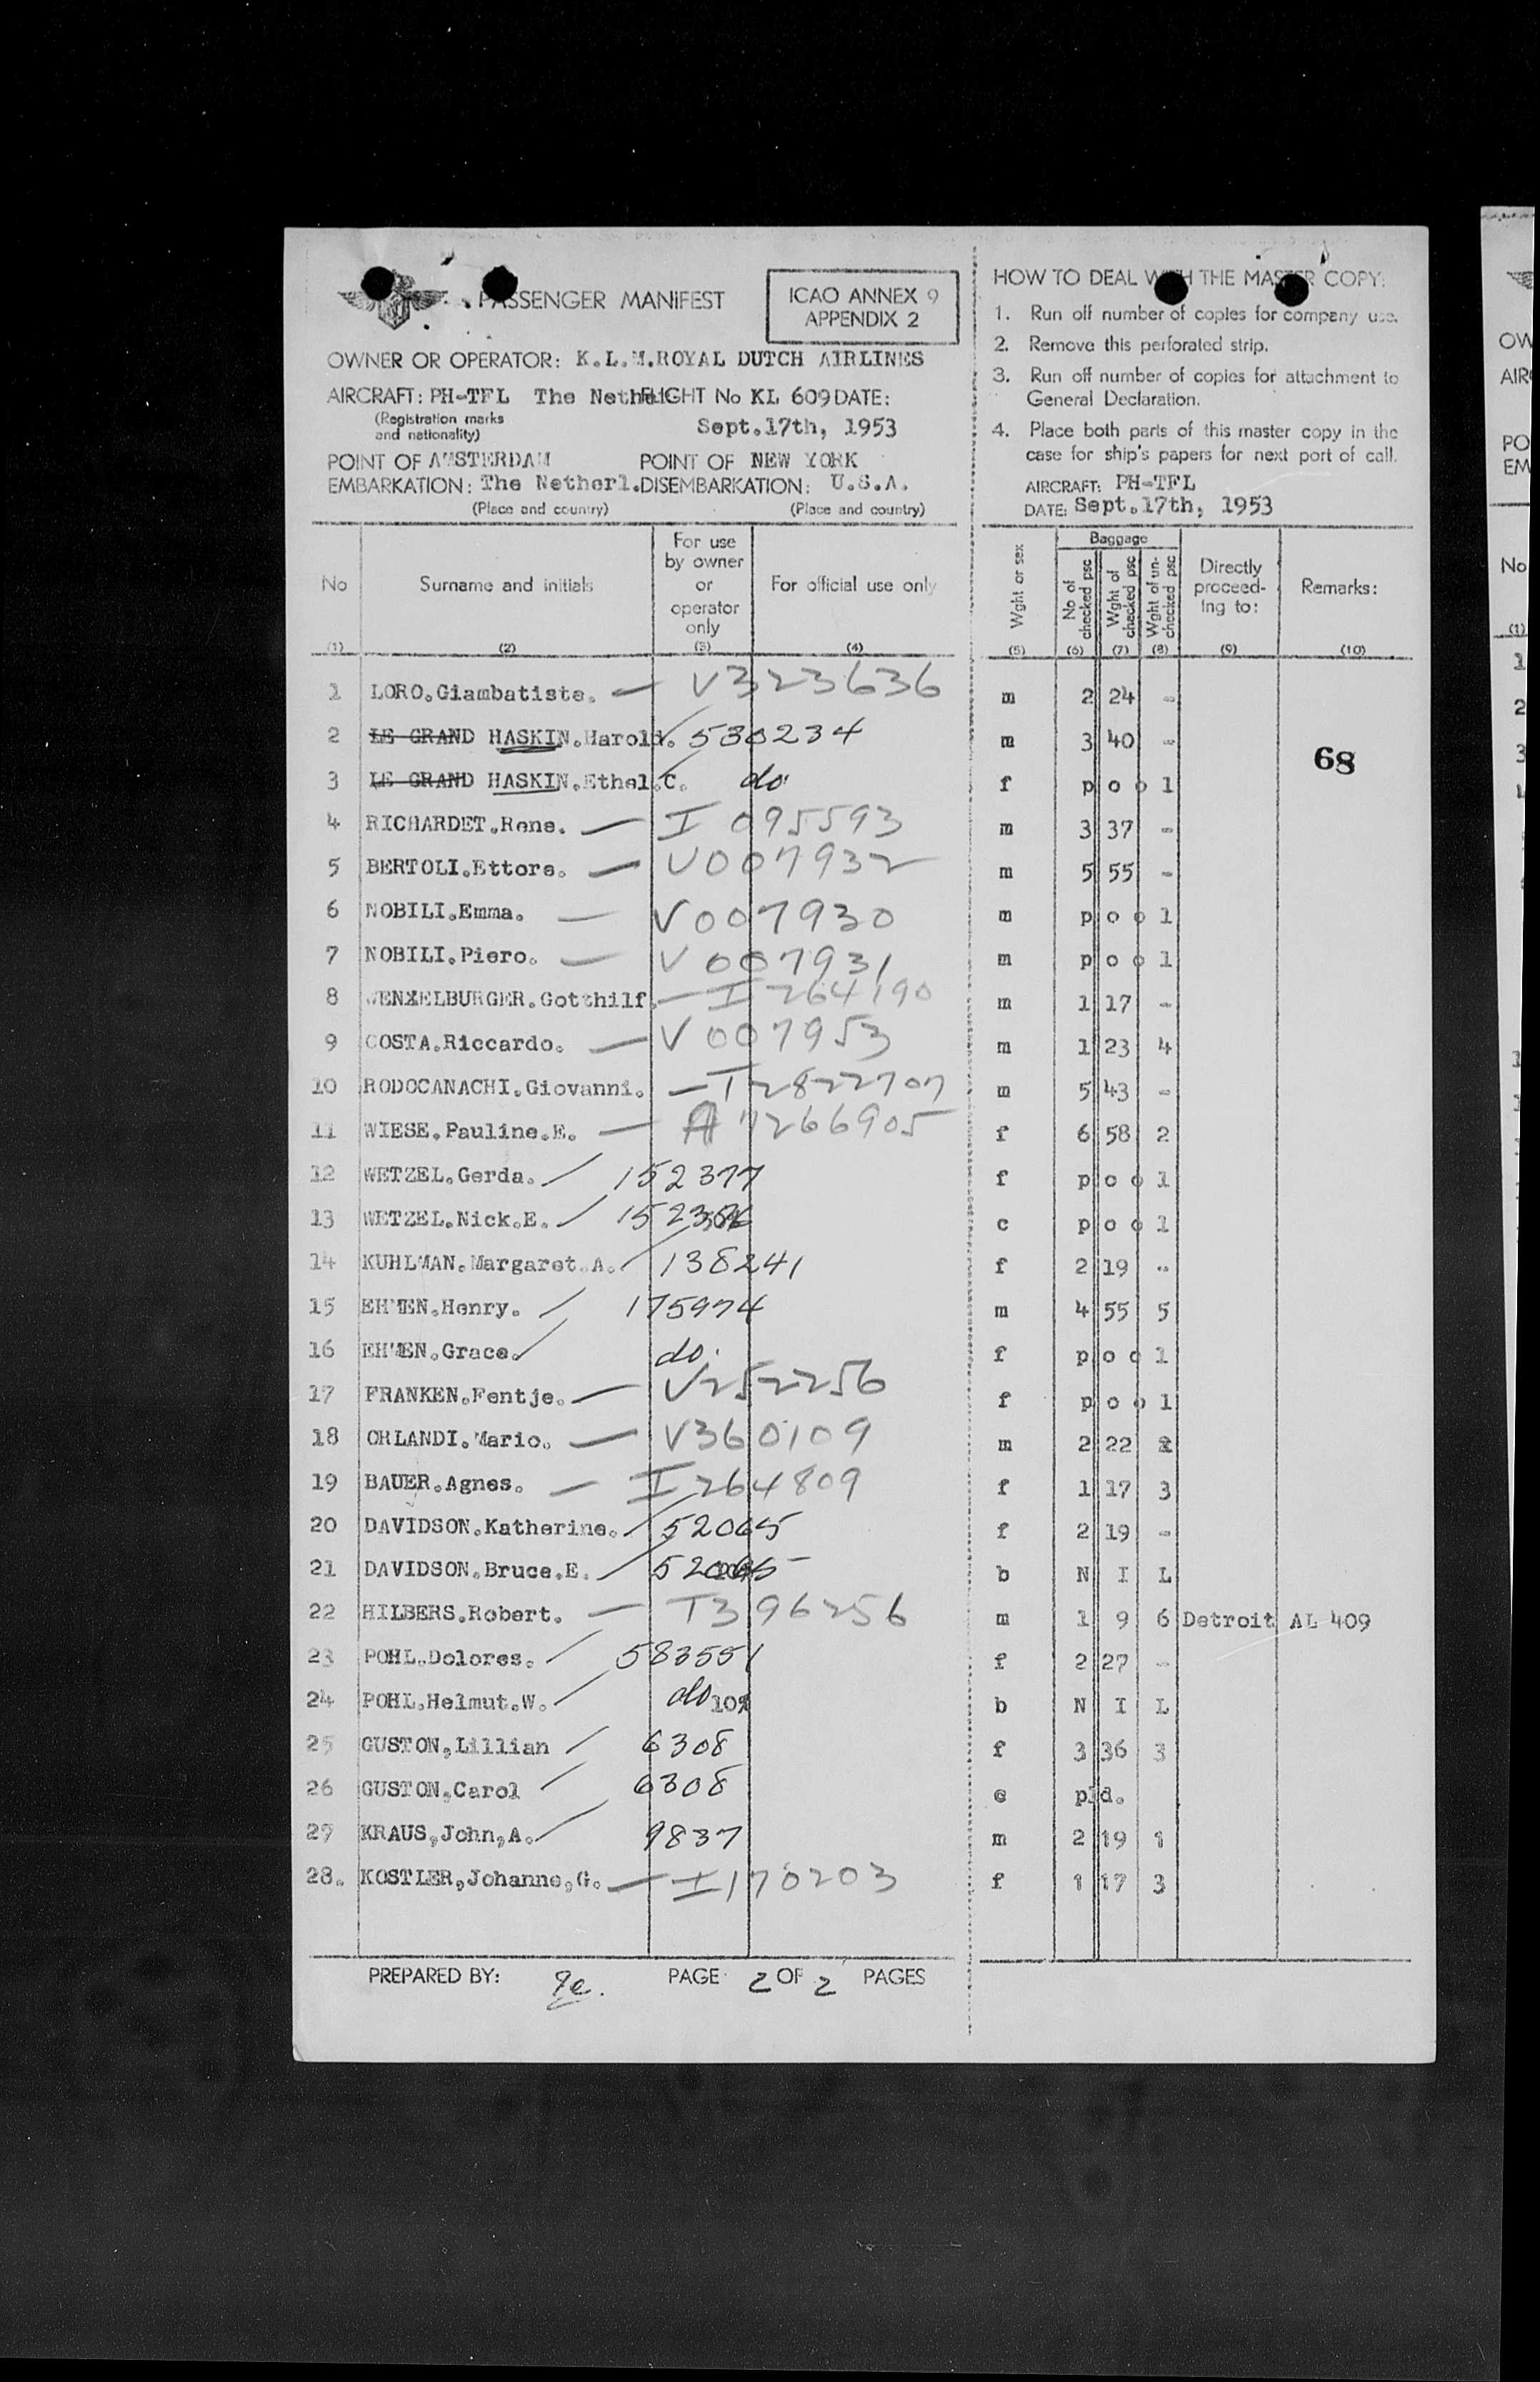 PASSENGER MANIFEST
ICAO ANNEX 9
APPENDIX 2
OWNER OR OPERATOR: K.L.M.ROYAL DUTCH AIRLINES
AIRCRAFT: PH-TFL The Nethe FLIGHT No KL 609 DATE:
(Registration marks
and nationality)
Sept.17th, 1953
POINT OF AMSTERDAM POINT OF NEW YORK
EMBARKATION: The Netherl. DISEMBARKATION: U.S.A.
(Place and country) (Place and country)
HOW TO DEAL WITH THE MASTER COPY:
1. Run off number of copies for company use.
2. Remove this perforated strip.
3. Run off number of copies for attachment to
General Declaration.
4. Place both parts of this master copy in the
case for ship's papers for next port of call.
AIRCRAFT: PH-TFL
DATE: Sept.17th, 1953
No Surname and initials For use by owner or operator only For official use only Wght or sex Baggage No of checked psc Wght of checked psc Wght of un-checked psc Directly proceed-ing to: Remarks:
(1) (2) (3) (4) (5) (6) (7) (8) (9) (10)
1 LORO.Giambatiste. — V323636 m 2 24 -
2 LE GRAND HASKIN.Harold. / 530234 m 3 40 -
68
3 LE GRAND HASKIN.Ethel.C. / do f p o o l
4 RICHARDET.Rene. — I 095593 m 3 37 -
5 BERTOLI.Ettore. — V007932 m 5 55 -
6 NOBILI.Emma. — V007930 m p o o l
7 NOBILI.Piero. — V007931 m p o o l
8 WENXELBURGER.Gotthilf. — I 264190 m 1 17 -
9 COSTA.Riccardo. — V007953 m 1 23 4
10 RODOCANACHI.Giovanni. — T2822707 m 5 43 -
11 WIESE.Pauline.E. — A7266905 f 6 58 2
12 WETZEL.Gerda. / 152377 f p o o l
13 WETZEL.Nick.E. / c p o o l
14 KUHLMAN.Margaret.A. / 138241 f 2 19 -
15 EHMEN.Henry. / 175974 m 4 55 5
16 EHMEN.Grace. / do. f p o o l
17 FRANKEN.Fentje. — V252256 f p o o l
18 ORLANDI.Mario. — V360109 m 2 22
19 BAUER.Agnes. — I 264809 f 1 17 3
20 DAVIDSON.Katherine. / 52065 f 2 19 -
21 DAVIDSON.Bruce.E. / b N I L
22 HILBERS.Robert. — T396256 m 1 9 6 Detroit AL 409
23 POHL.Dolores. / 583551 f 2 27 -
24 POHL.Helmut.W. / do 10% b N I L
25 GUSTON,Lillian / 6308 f 3 36 3
26 GUSTON,Carol / 6308 c pld.
27 KRAUS,John,A. / 9837 m 2 19 1
28. KOSTLER,Johanne,G. — I170203 f 1 17 3
PREPARED BY: PAGE 2 OF 2 PAGES